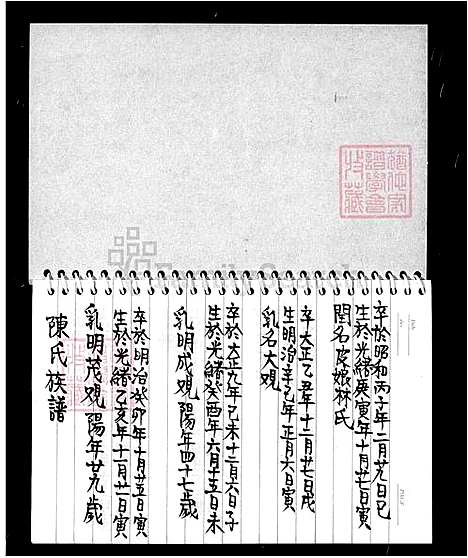 卒於昭和丙子年二月廿九日巳
生於光緒庚寅年十月廿七日寅
閏名皮娘林氏
卒大正乙丑年十二月廿七日戌
生明治辛巳年正月六日寅
乳名大覌
卒於大正九年己未十二月六日子
生於光緒癸酉年六月十五日未
乳明成覌 陽年四十七歲
卒於明治癸卯年十月廿五日寅
生於光緒乙亥年十一月廿一日寅
乳明茂覌 陽年廿九歲
陳氏族譜
譜學會
特藏